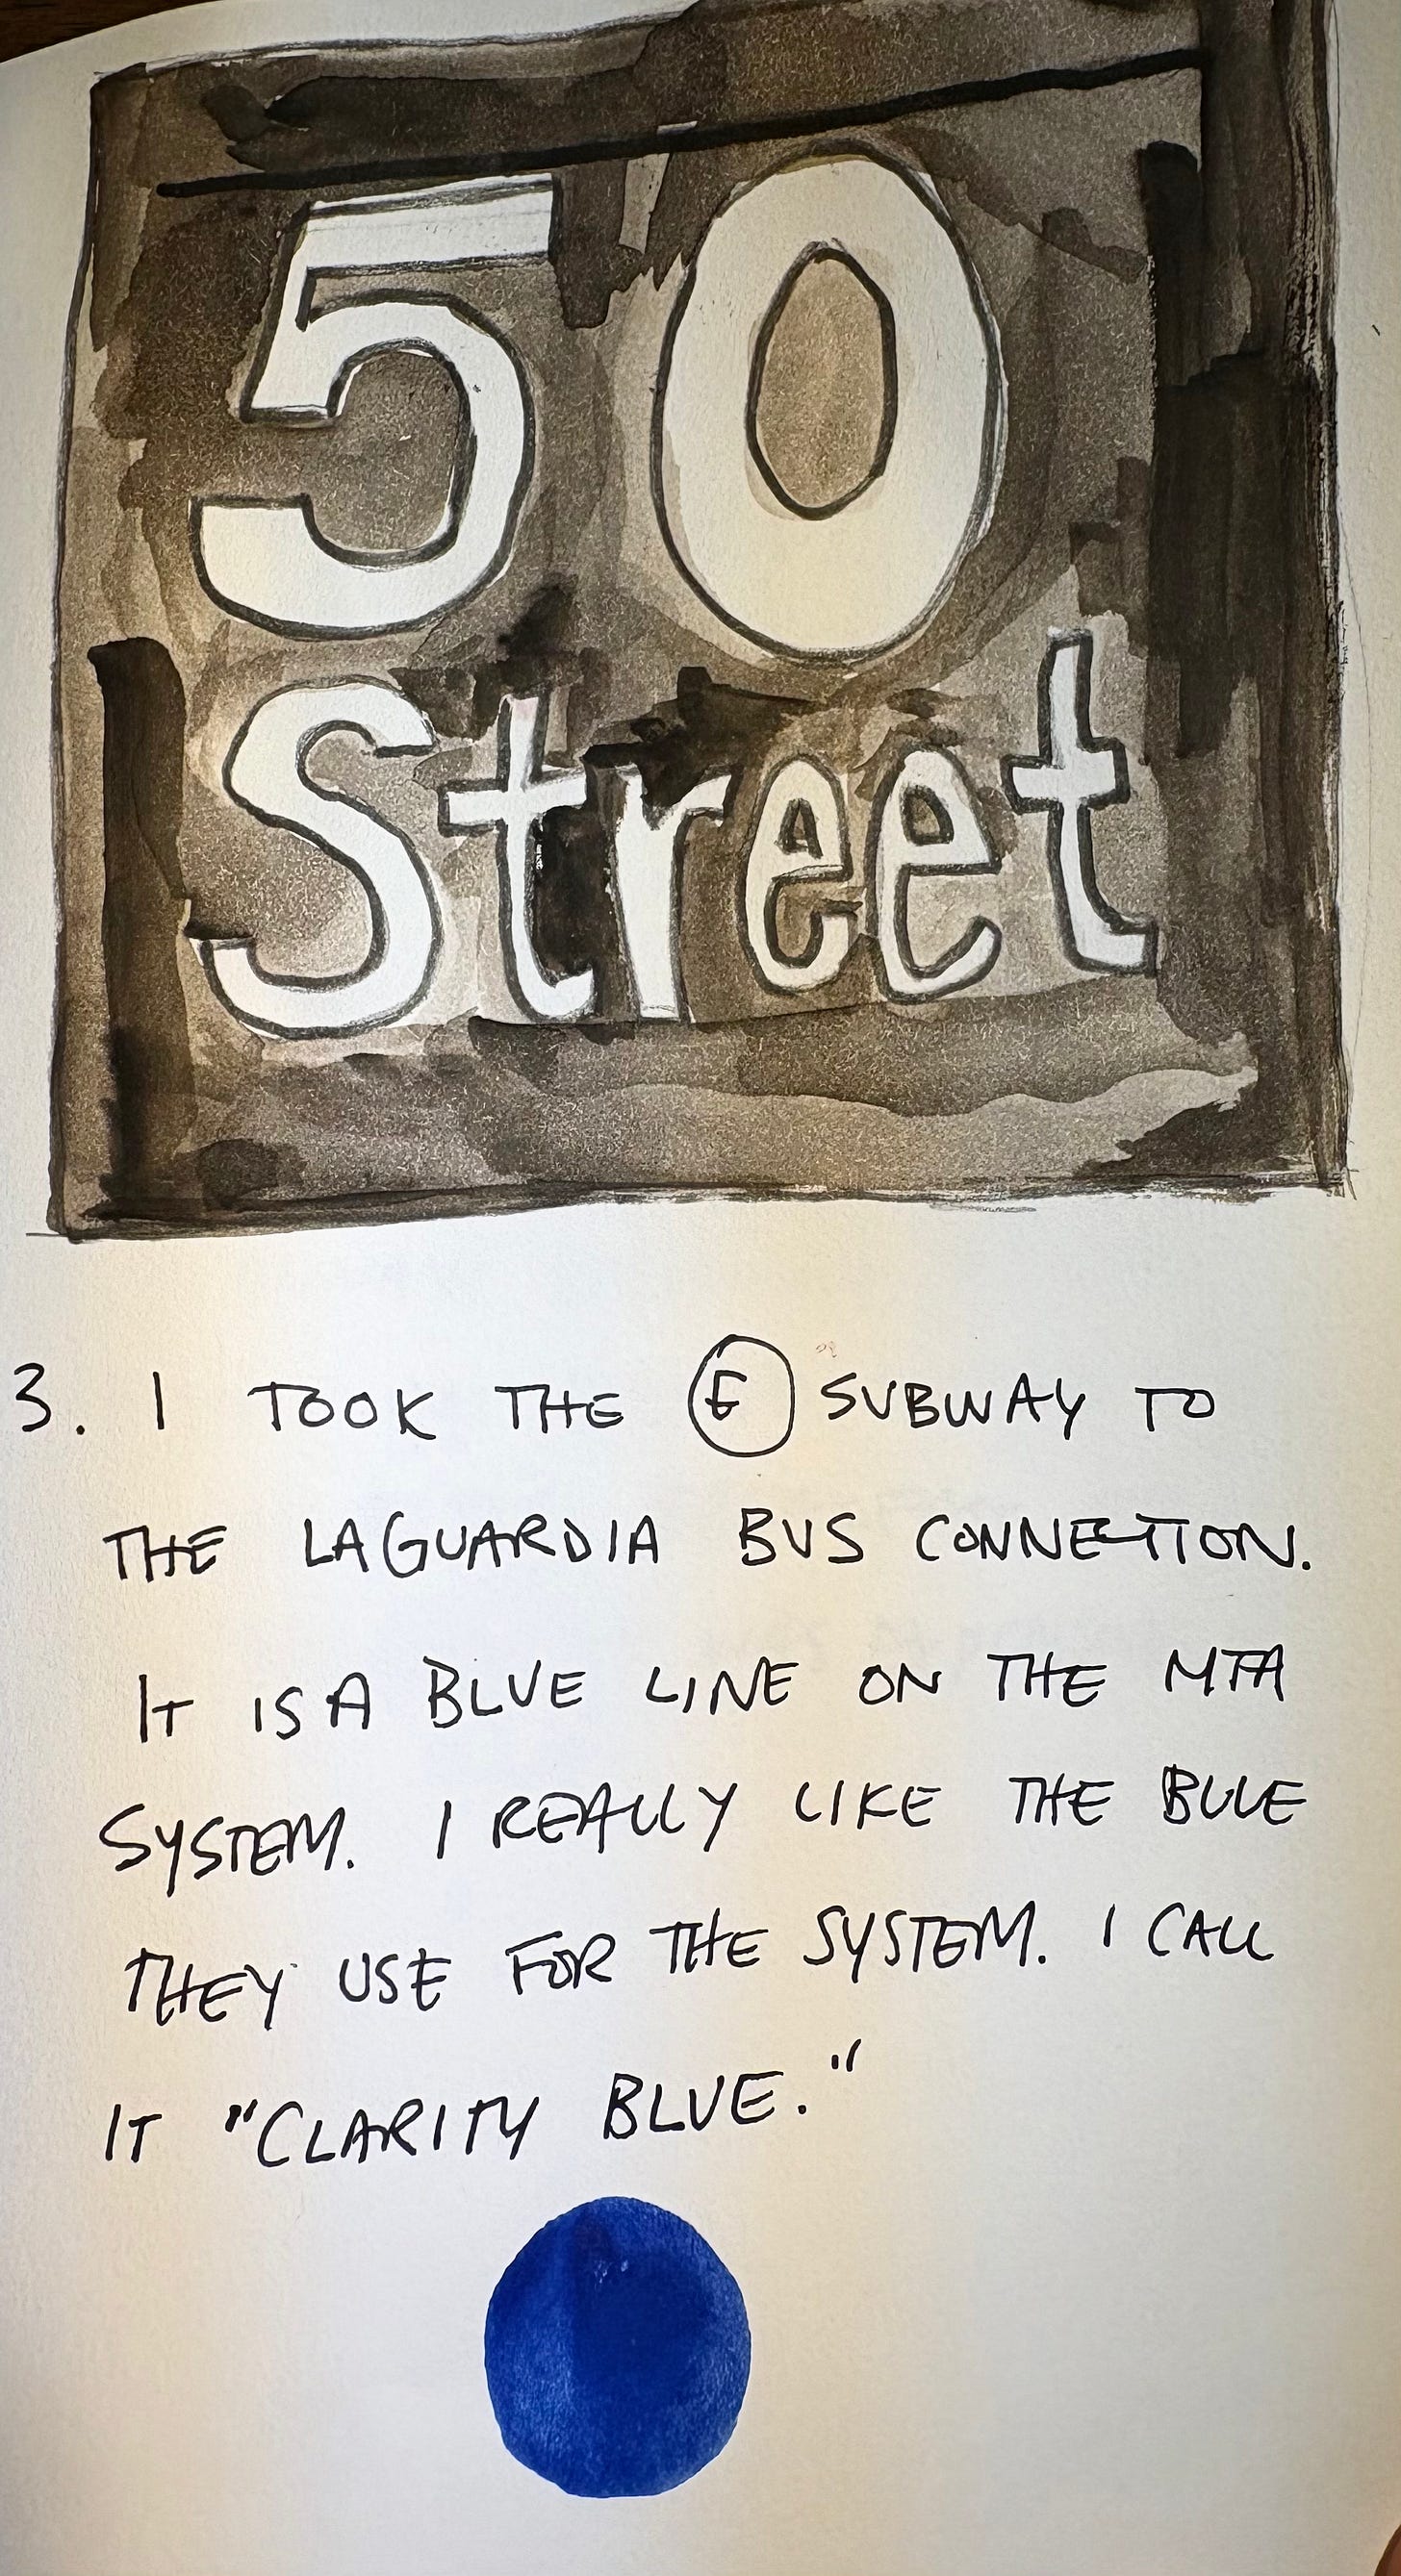 50
Street
3. I TOOK THE E SUBWAY TO
THE LAGUARDIA BUS CONNECTION.
IT IS A BLUE LINE ON THE MTA
SYSTEM. I REALLY LIKE THE BLUE
THEY USE FOR THE SYSTEM. I CALL
IT "CLARITY BLUE."